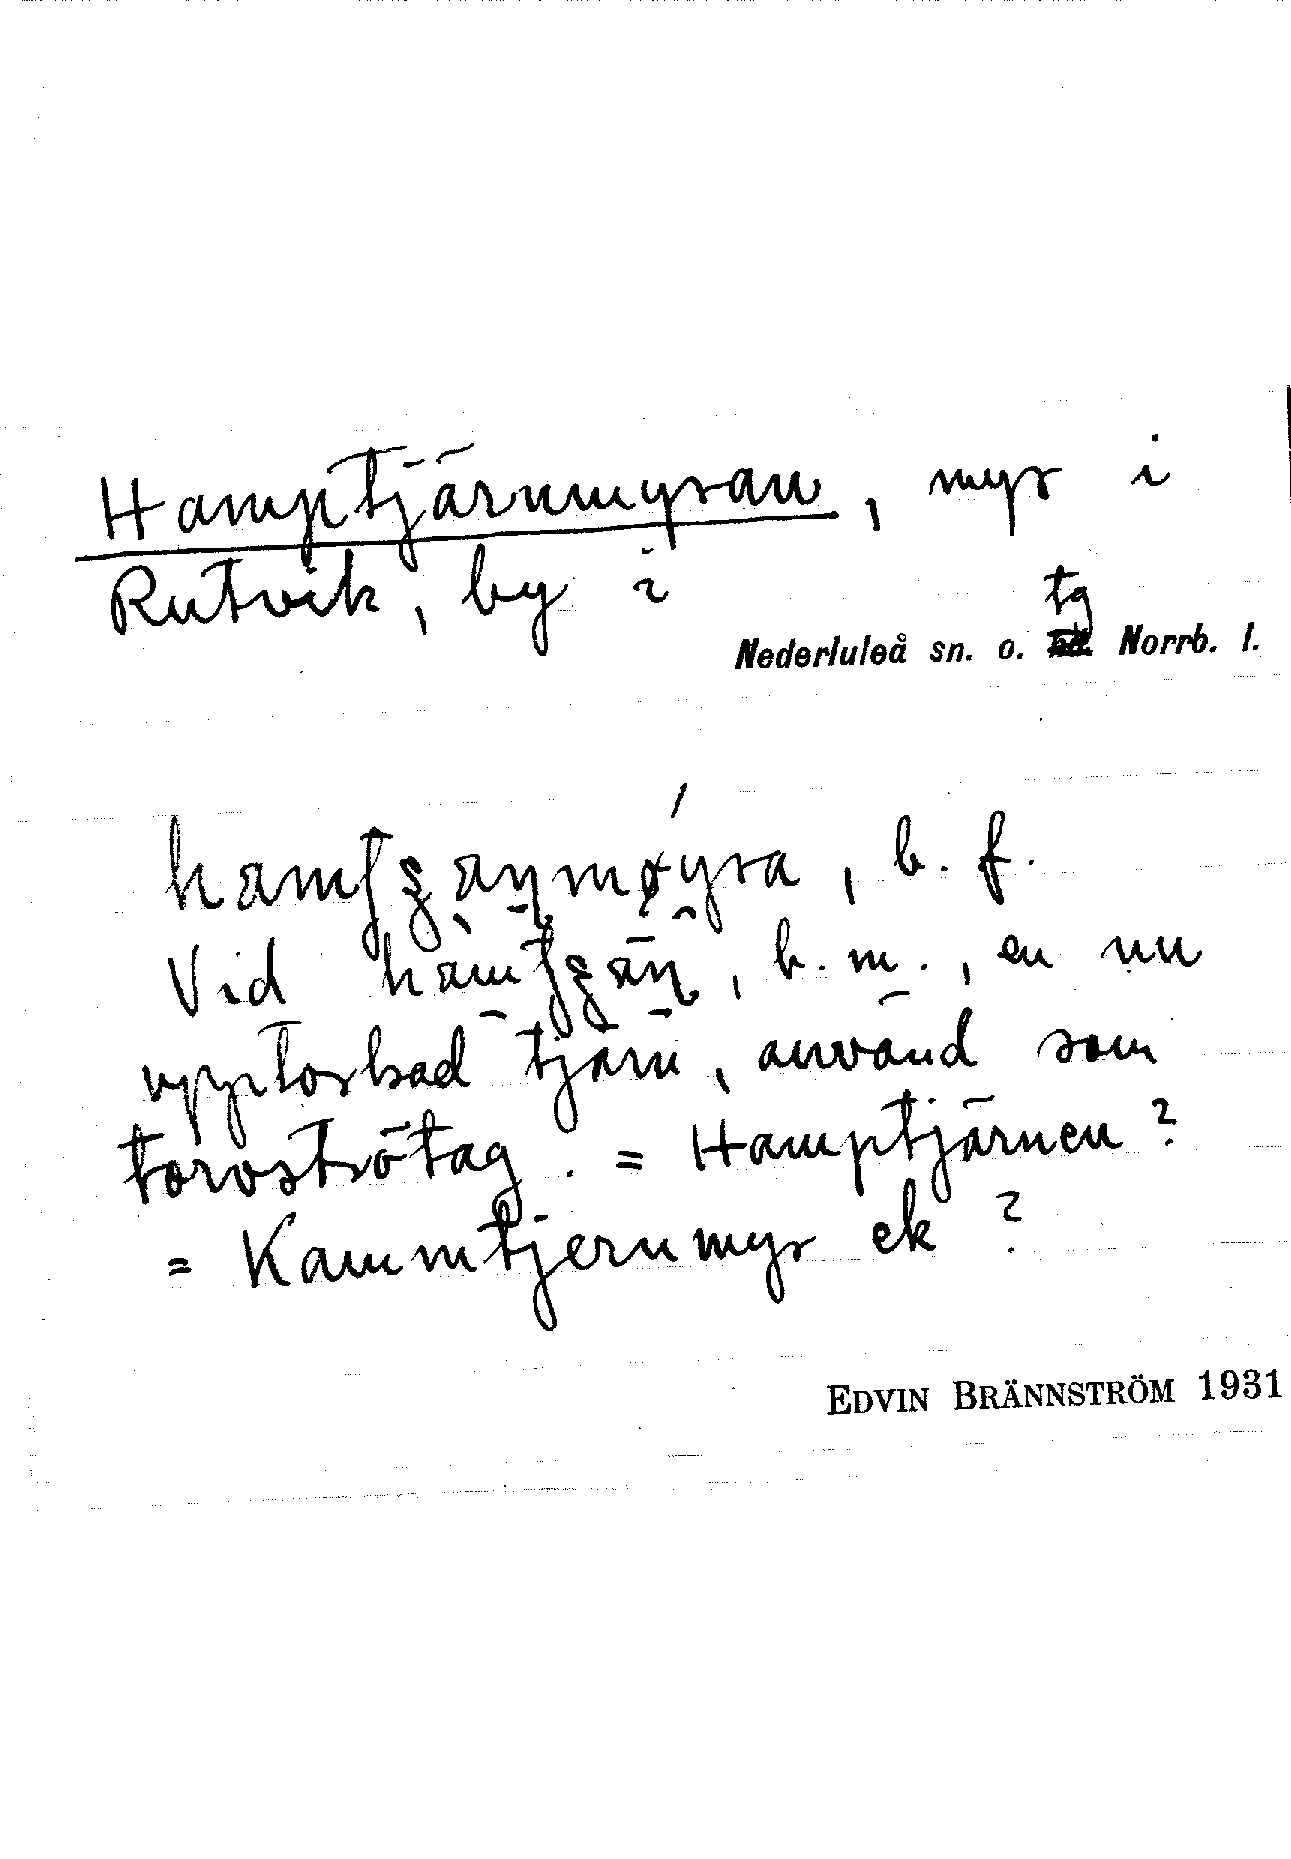 Hamptjärnmyran, myr i
Rutvik, by i
tg
Nederluleå sn. o. Norrb. l.
b. f.
Vid , b. m., en nu
upptorkad tjärn, använd som
torvströtag. = Hamptjärnen?
= Kammtjernmyr ek?
EDVIN BRÄNNSTRÖM 1931